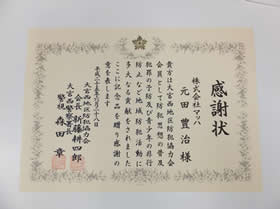 感謝状
株式会社マッハ
元田豊治様
貴方は大宮西地区防犯協力会
会員として防犯思想の普及
犯罪の予防及び青少年の非行
防止など地域防犯活動に
多大なる貢献をされました
ここに記念品を贈り感謝の
意を表します
平成二十五年六月十八日
大宮西地区防犯協力会
会長 新藤耕四郎
大宮西警察署長
警視 森田章